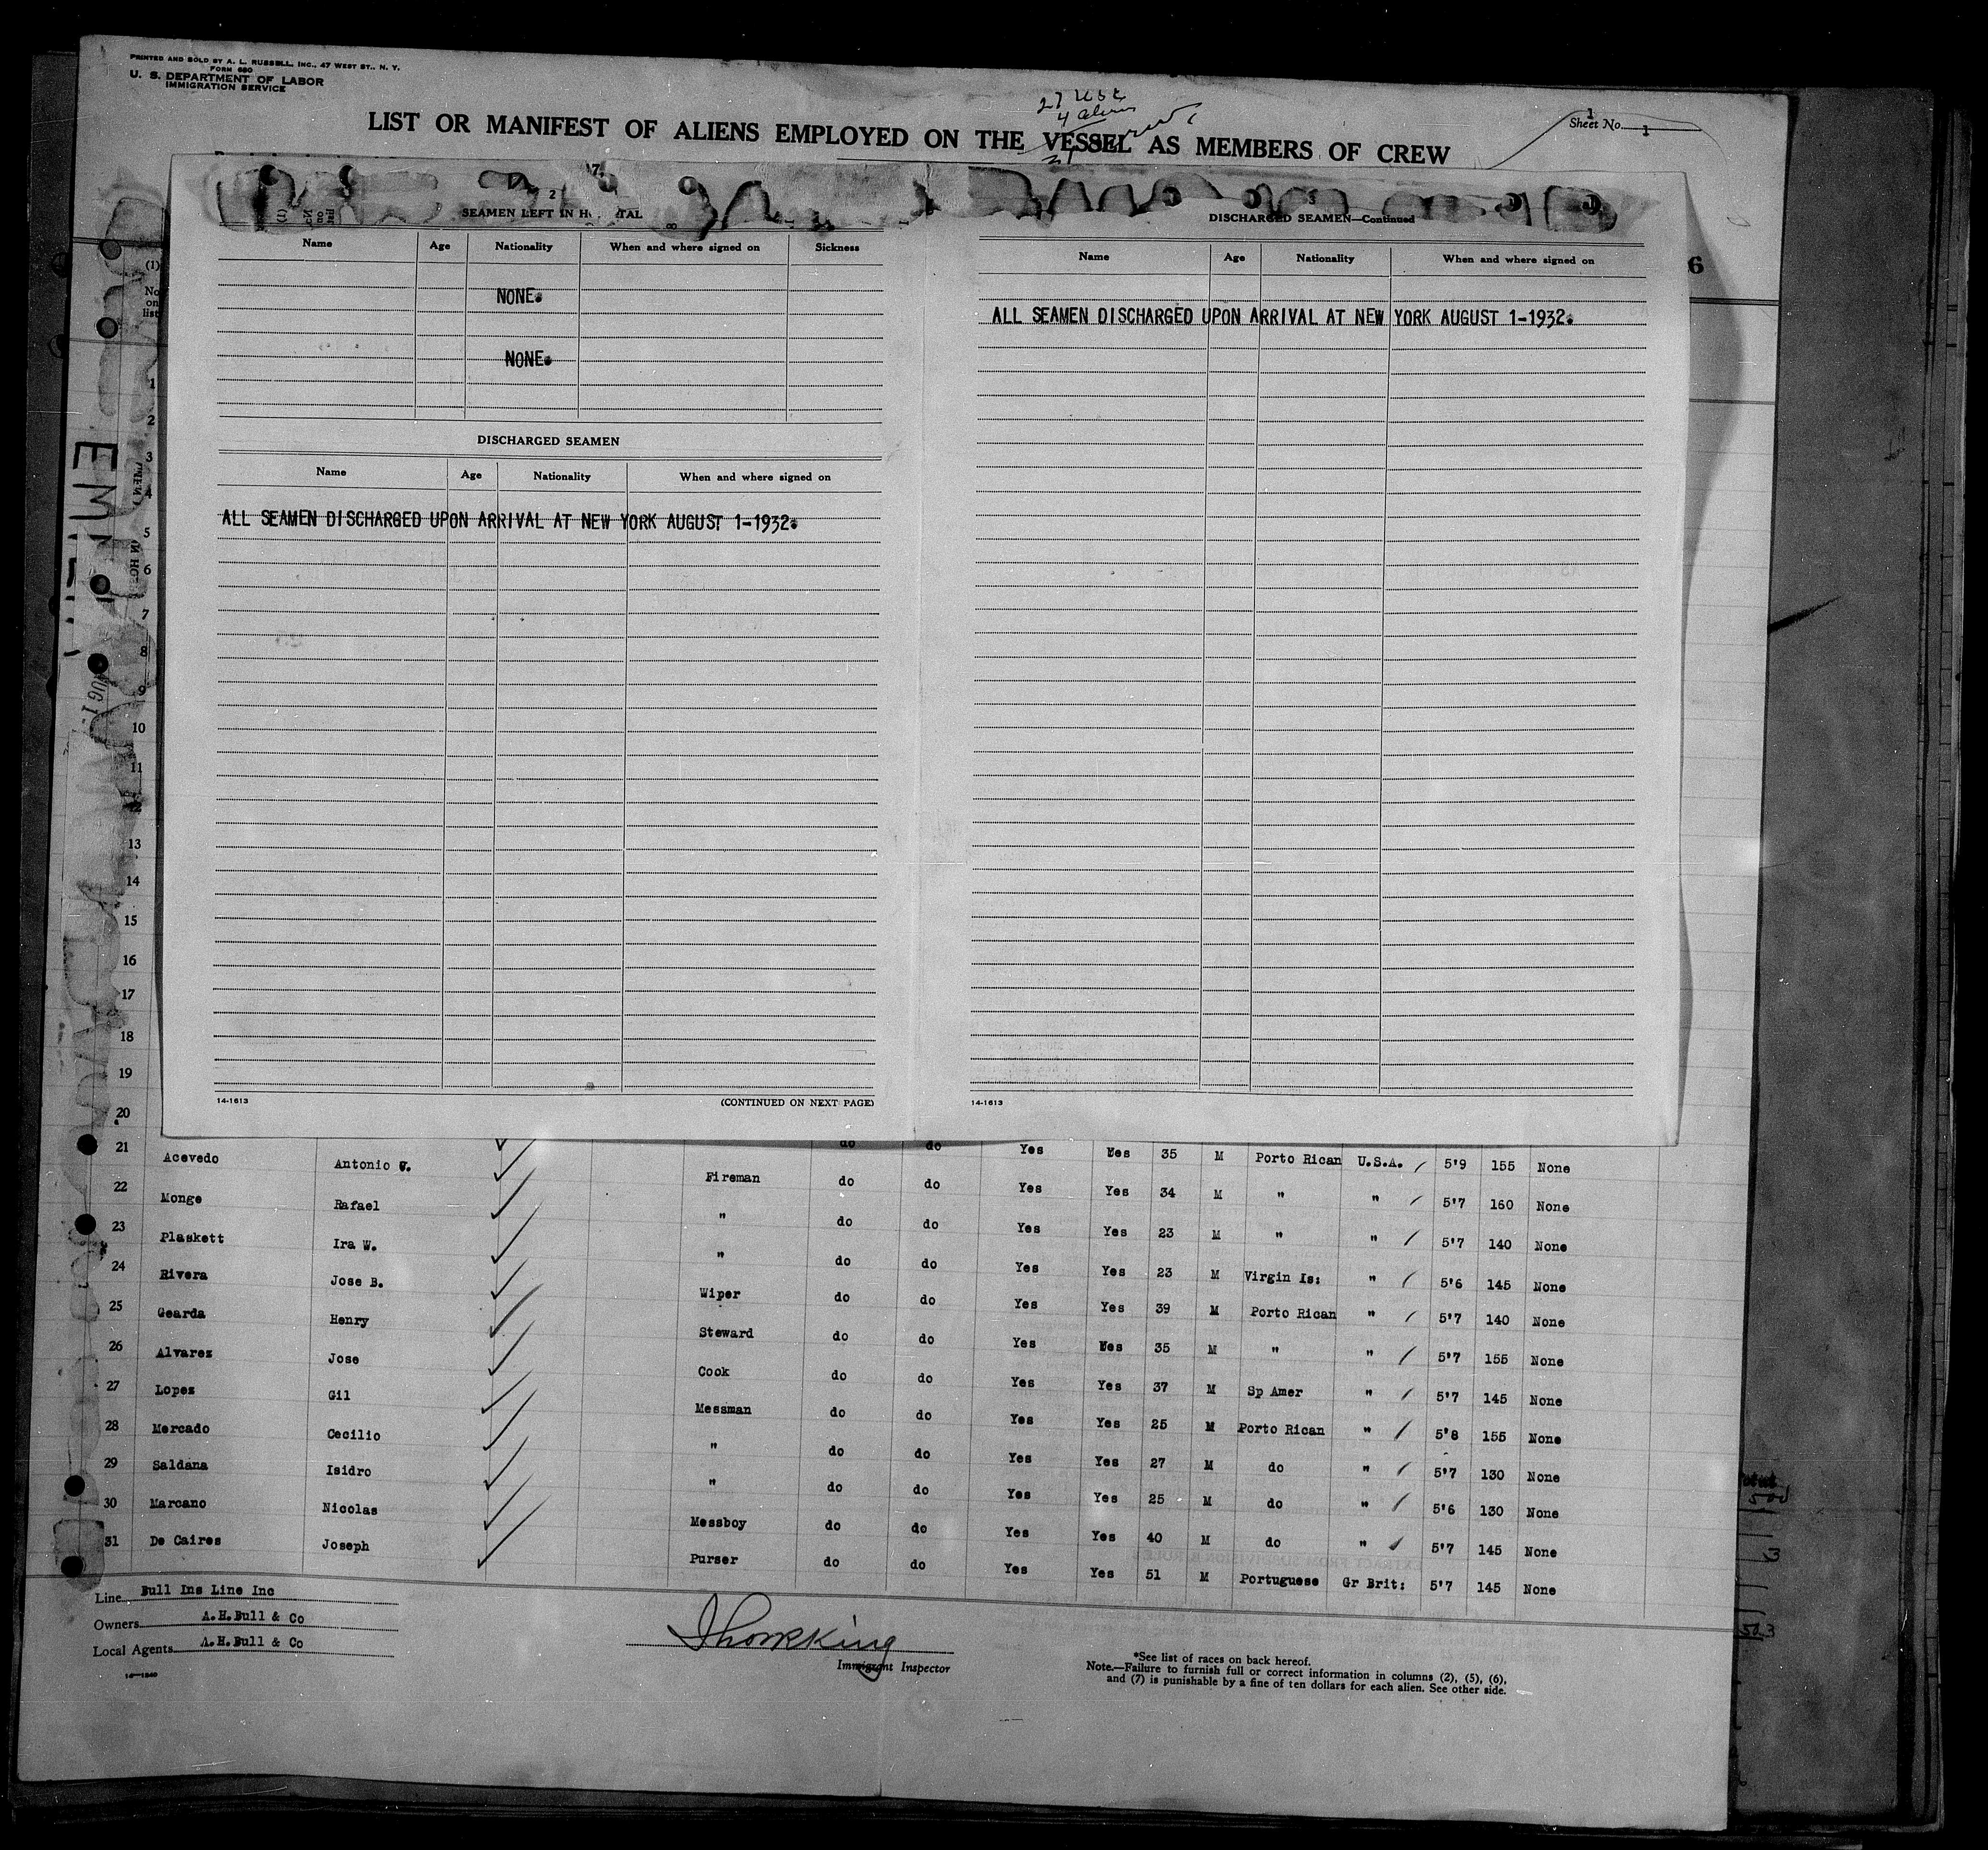 PRINTED AND SOLD BY A. L. RUSSELL, INC., 47 WEST ST., N. Y.
FORM 680
U. S. DEPARTMENT OF LABOR
IMMIGRATION SERVICE
4 aliens
Sheet No. 1
1
LIST OR MANIFEST OF ALIENS EMPLOYED ON THE VESSEL AS MEMBERS OF CREW
2
SEAMEN LEFT IN H TAL
Name Age Nationality When and where signed on Sickness
NONE.
NONE.
DISCHARGED SEAMEN
Name Age Nationality When and where signed on
ALL SEAMEN DISCHARGED UPON ARRIVAL AT NEW YORK AUGUST 1-1932.
14-1613 (CONTINUED ON NEXT PAGE)
3
DISCHARGED SEAMEN—Continued
Name Age Nationality When and where signed on
ALL SEAMEN DISCHARGED UPON ARRIVAL AT NEW YORK AUGUST 1-1932.
14-1613
6
(1)
No
on
list
1
2
3
4
5
6
7
8
9
10
11
12
13
14
15
16
17
18
19
20
21 Acevedo Antonio Fireman do do Yes Yes 35 M Porto Rican U.S.A. 5'9 155 None
22 Monge Rafael " do do Yes Yes 34 M " " 5'7 160 None
23 Plaskett Ira W. " do do Yes Yes 23 M " " 5'7 140 None
24 Rivera Jose B. Wiper do do Yes Yes 23 M Virgin Is: " 5'6 145 None
25 Gearda Henry Steward do do Yes Yes 39 M Porto Rican " 5'7 140 None
26 Alvarez Jose Cook do do Yes Yes 35 M " " 5'7 155 None
27 Lopez Gil Messman do do Yes Yes 37 M Sp Amer " 5'7 145 None
28 Mercado Cecilio " do do Yes Yes 25 M Porto Rican " 5'8 155 None
29 Saldana Isidro " do do Yes Yes 27 M do " 5'7 130 None
30 Marcano Nicolas Messboy do do Yes Yes 25 M do " 5'6 130 None
31 De Caires Joseph Purser do do Yes Yes 40 M do " 5'7 145 None
Yes Yes 51 M Portuguese Gr Brit: 5'7 145 None
Line Bull Ins Line Inc
Owners A.H.Bull & Co
Local Agents A.H.Bull & Co
Immigrant Inspector
*See list of races on back hereof.
Note.—Failure to furnish full or correct information in columns (2), (5), (6),
and (7) is punishable by a fine of ten dollars for each alien. See other side.